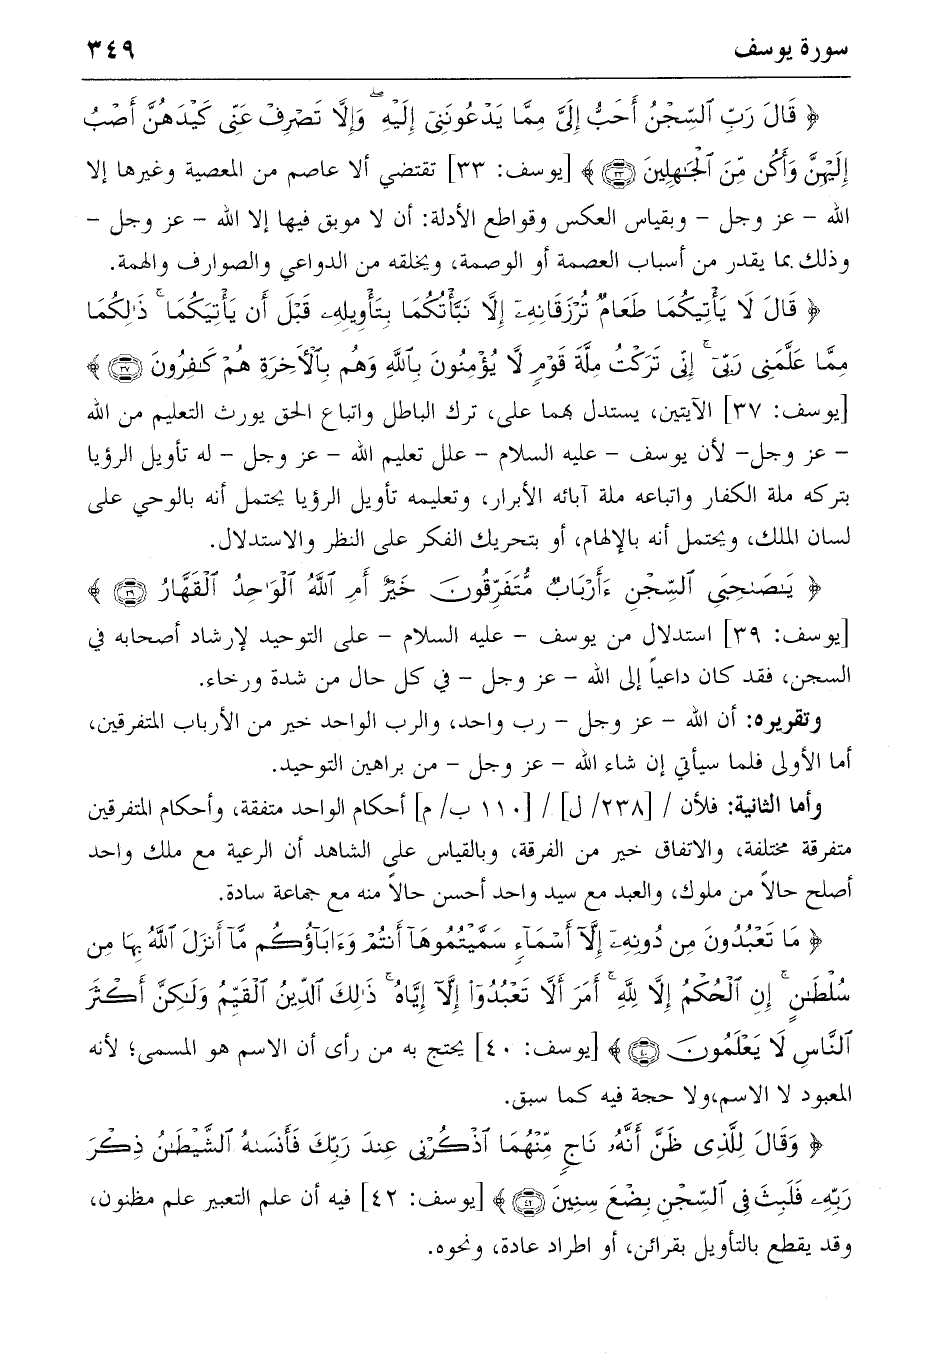 سورة يوسف ٣٤٩
﴿ قَالَ رَبِّ ٱلسِّجْنُ أَحَبُّ إِلَىَّ مِمَّا يَدْعُونَنِىٓ إِلَيْهِ ۖ وَإِلَّا تَصْرِفْ عَنِّى كَيْدَهُنَّ أَصْبُ
إِلَيْهِنَّ وَأَكُن مِّنَ ٱلْجَٰهِلِينَ ٣٣ ﴾ [يوسف: ٣٣] تقتضي ألا عاصم من المعصية وغيرها إلا
الله - عز وجل - وبقياس العكس وقواطع الأدلة: أن لا موبق فيها إلا الله - عز وجل -
وذلك بما يقدر من أسباب العصمة أو الوصمة، ويخلقه من الدواعي والصوارف والهمة.
﴿ قَالَ لَا يَأْتِيكُمَا طَعَامٌ تُرْزَقَانِهِۦٓ إِلَّا نَبَّأْتُكُمَا بِتَأْوِيلِهِۦ قَبْلَ أَن يَأْتِيَكُمَا ۚ ذَٰلِكُمَا
مِمَّا عَلَّمَنِى رَبِّىٓ ۚ إِنِّى تَرَكْتُ مِلَّةَ قَوْمٍ لَّا يُؤْمِنُونَ بِٱللَّهِ وَهُم بِٱلْءَاخِرَةِ هُمْ كَٰفِرُونَ ٣٧ ﴾
[يوسف: ٣٧] الآيتين، يستدل بهما على، ترك الباطل واتباع الحق يورث التعليم من الله
- عز وجل- لأن يوسف - عليه السلام - علل تعليم الله - عز وجل - له تأويل الرؤيا
بتركه ملة الكفار واتباعه ملة آبائه الأبرار، وتعليمه تأويل الرؤيا يحتمل أنه بالوحي على
لسان الملك، ويحتمل أنه بالإلهام، أو بتحريك الفكر على النظر والاستدلال.
﴿ يَٰصَٰحِبَىِ ٱلسِّجْنِ ءَأَرْبَابٌ مُّتَفَرِّقُونَ خَيْرٌ أَمِ ٱللَّهُ ٱلْوَٰحِدُ ٱلْقَهَّارُ ٣٩ ﴾
[يوسف: ٣٩] استدلال من يوسف - عليه السلام - على التوحيد لإرشاد أصحابه في
السجن، فقد كان داعياً إلى الله - عز وجل - في كل حال من شدة ورخاء.
وتقريره: أن الله - عز وجل - رب واحد، والرب الواحد خير من الأرباب المتفرقين،
أما الأولى فلما سيأتي إن شاء الله - عز وجل - من براهين التوحيد.
وأما الثانية: فلأن / [٢٣٨/ ل] / [١١٠ ب/ م] أحكام الواحد متفقة، وأحكام المتفرقين
متفرقة مختلفة، والاتفاق خير من الفرقة، وبالقياس على الشاهد أن الرعية مع ملك واحد
أصلح حالاً من ملوك، والعبد مع سيد واحد أحسن حالاً منه مع جماعة سادة.
﴿ مَا تَعْبُدُونَ مِن دُونِهِۦٓ إِلَّآ أَسْمَآءً سَمَّيْتُمُوهَآ أَنتُمْ وَءَابَآؤُكُم مَّآ أَنزَلَ ٱللَّهُ بِهَا مِن
سُلْطَٰنٍ ۚ إِنِ ٱلْحُكْمُ إِلَّا لِلَّهِ ۚ أَمَرَ أَلَّا تَعْبُدُوٓا۟ إِلَّآ إِيَّاهُ ۚ ذَٰلِكَ ٱلدِّينُ ٱلْقَيِّمُ وَلَٰكِنَّ أَكْثَرَ
ٱلنَّاسِ لَا يَعْلَمُونَ ٤٠ ﴾ [يوسف: ٤٠] يحتج به من رأى أن الاسم هو المسمى؛ لأنه
المعبود لا الاسم،ولا حجة فيه كما سبق.
﴿ وَقَالَ لِلَّذِى ظَنَّ أَنَّهُۥ نَاجٍ مِّنْهُمَا ٱذْكُرْنِى عِندَ رَبِّكَ فَأَنسَىٰهُ ٱلشَّيْطَٰنُ ذِكْرَ
رَبِّهِۦ فَلَبِثَ فِى ٱلسِّجْنِ بِضْعَ سِنِينَ ٤٢ ﴾ [يوسف: ٤٢] فيه أن علم التعبير علم مظنون،
وقد يقطع بالتأويل بقرائن، أو اطراد عادة، ونحوه.